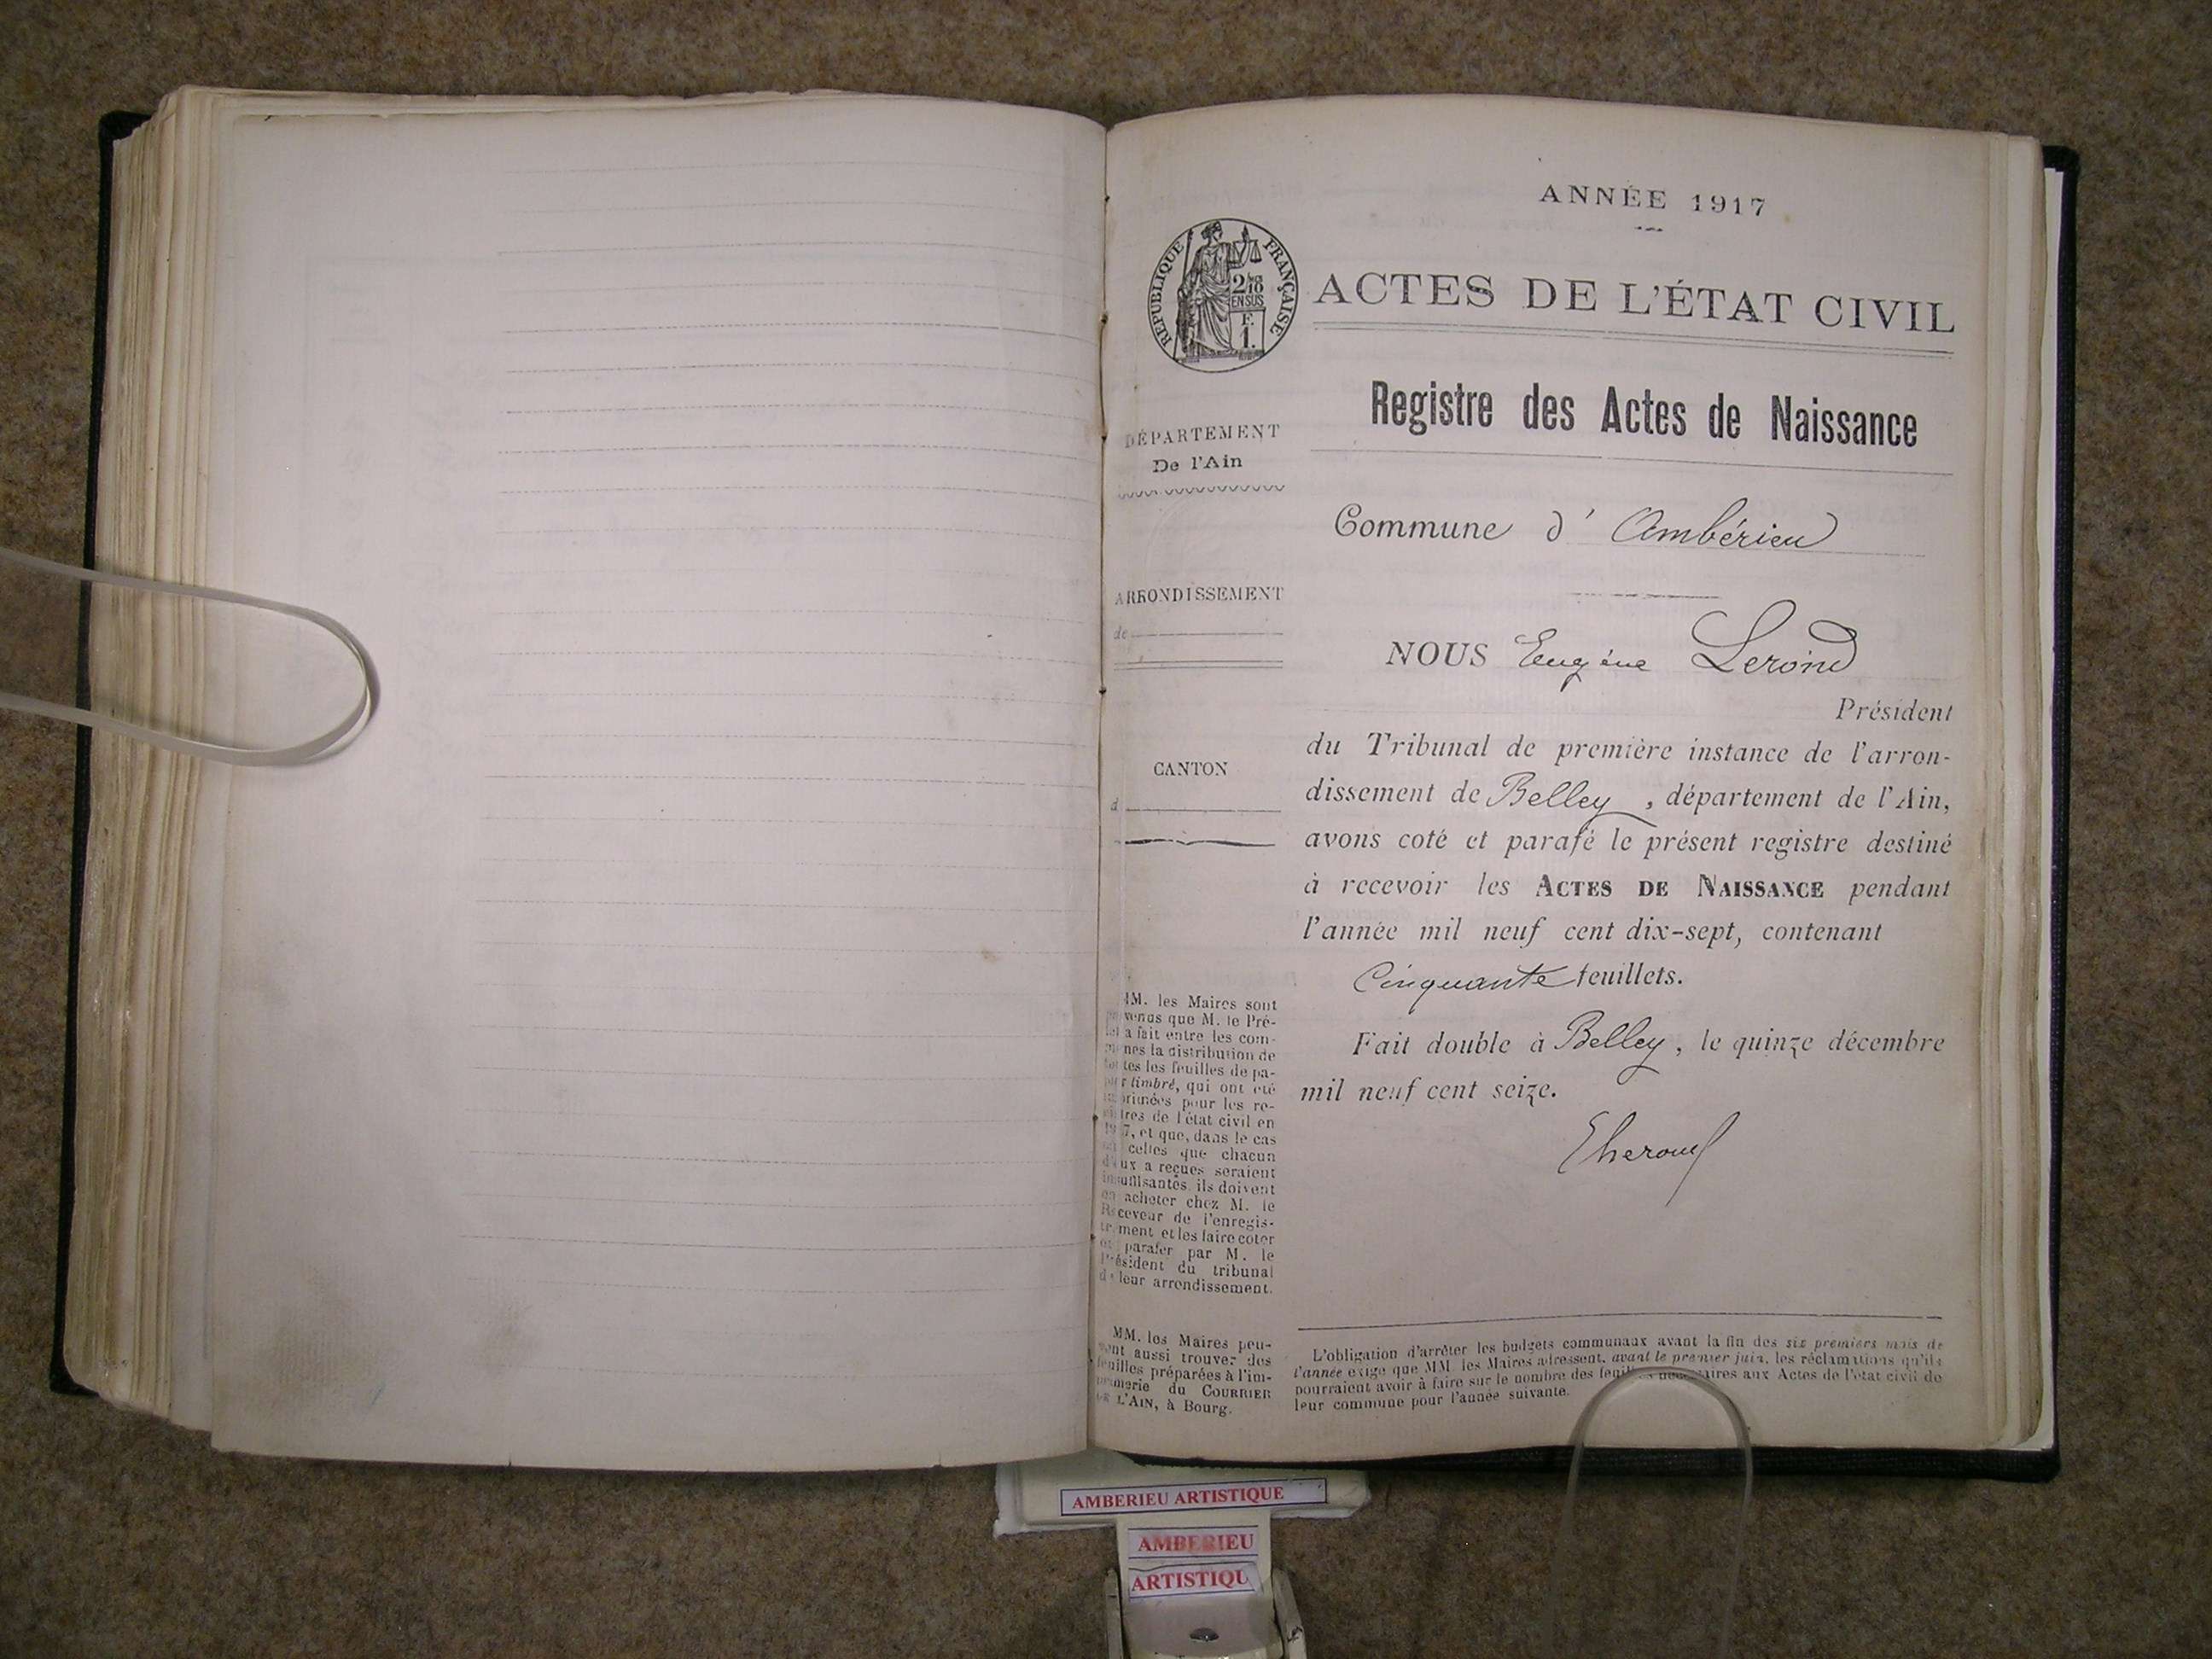 ANNÉE 1917
RÉPUBLIQUE FRANÇAISE
2/10
EN SUS
F.
1.
ACTES DE L'ÉTAT CIVIL
Registre des Actes de Naissance
DÉPARTEMENT
De l'Ain
Commune d' Ambérieu
ARRONDISSEMENT
de
NOUS Eugène
Président
du Tribunal de première instance de l'arron-
dissement de Belley, département de l'Ain,
CANTON
d
avons coté et parafé le présent registre destiné
à recevoir les ACTES DE NAISSANCE pendant
l'année mil neuf cent dix-sept, contenant
Cinquante feuillets.
Fait double à Belley, le quinze décembre
mil neuf cent seize.
MM. les Maires sont
venus que M. le Pré-
a fait entre les com-
nes la distribution de
tes les feuilles de pa-
r timbré, qui ont été
primées pour les re-
tres de l'état civil en
7, et que, dans le cas
celles que chacun
ux a reçues seraient
insuffisantes, ils doivent
en acheter chez M. le
Receveur de l'enregis-
trement et les faire coter
et parafer par M. le
Président du tribunal
de leur arrondissement.
MM. les Maires peu-
vent aussi trouver des
feuilles préparées à l'im-
primerie du COURRIER
DE L'AIN, à Bourg.
L'obligation d'arrêter les budgets communaux avant la fin des six premiers mois de
l'année exige que MM. les Maires adressent, avant le premier juin, les réclamations qu'ils
pourraient avoir à faire sur le nombre des feuilles nécessaires aux Actes de l'état civil de
leur commune pour l'année suivante.
AMBERIEU ARTISTIQUE
AMBERIEU
ARTISTIQU